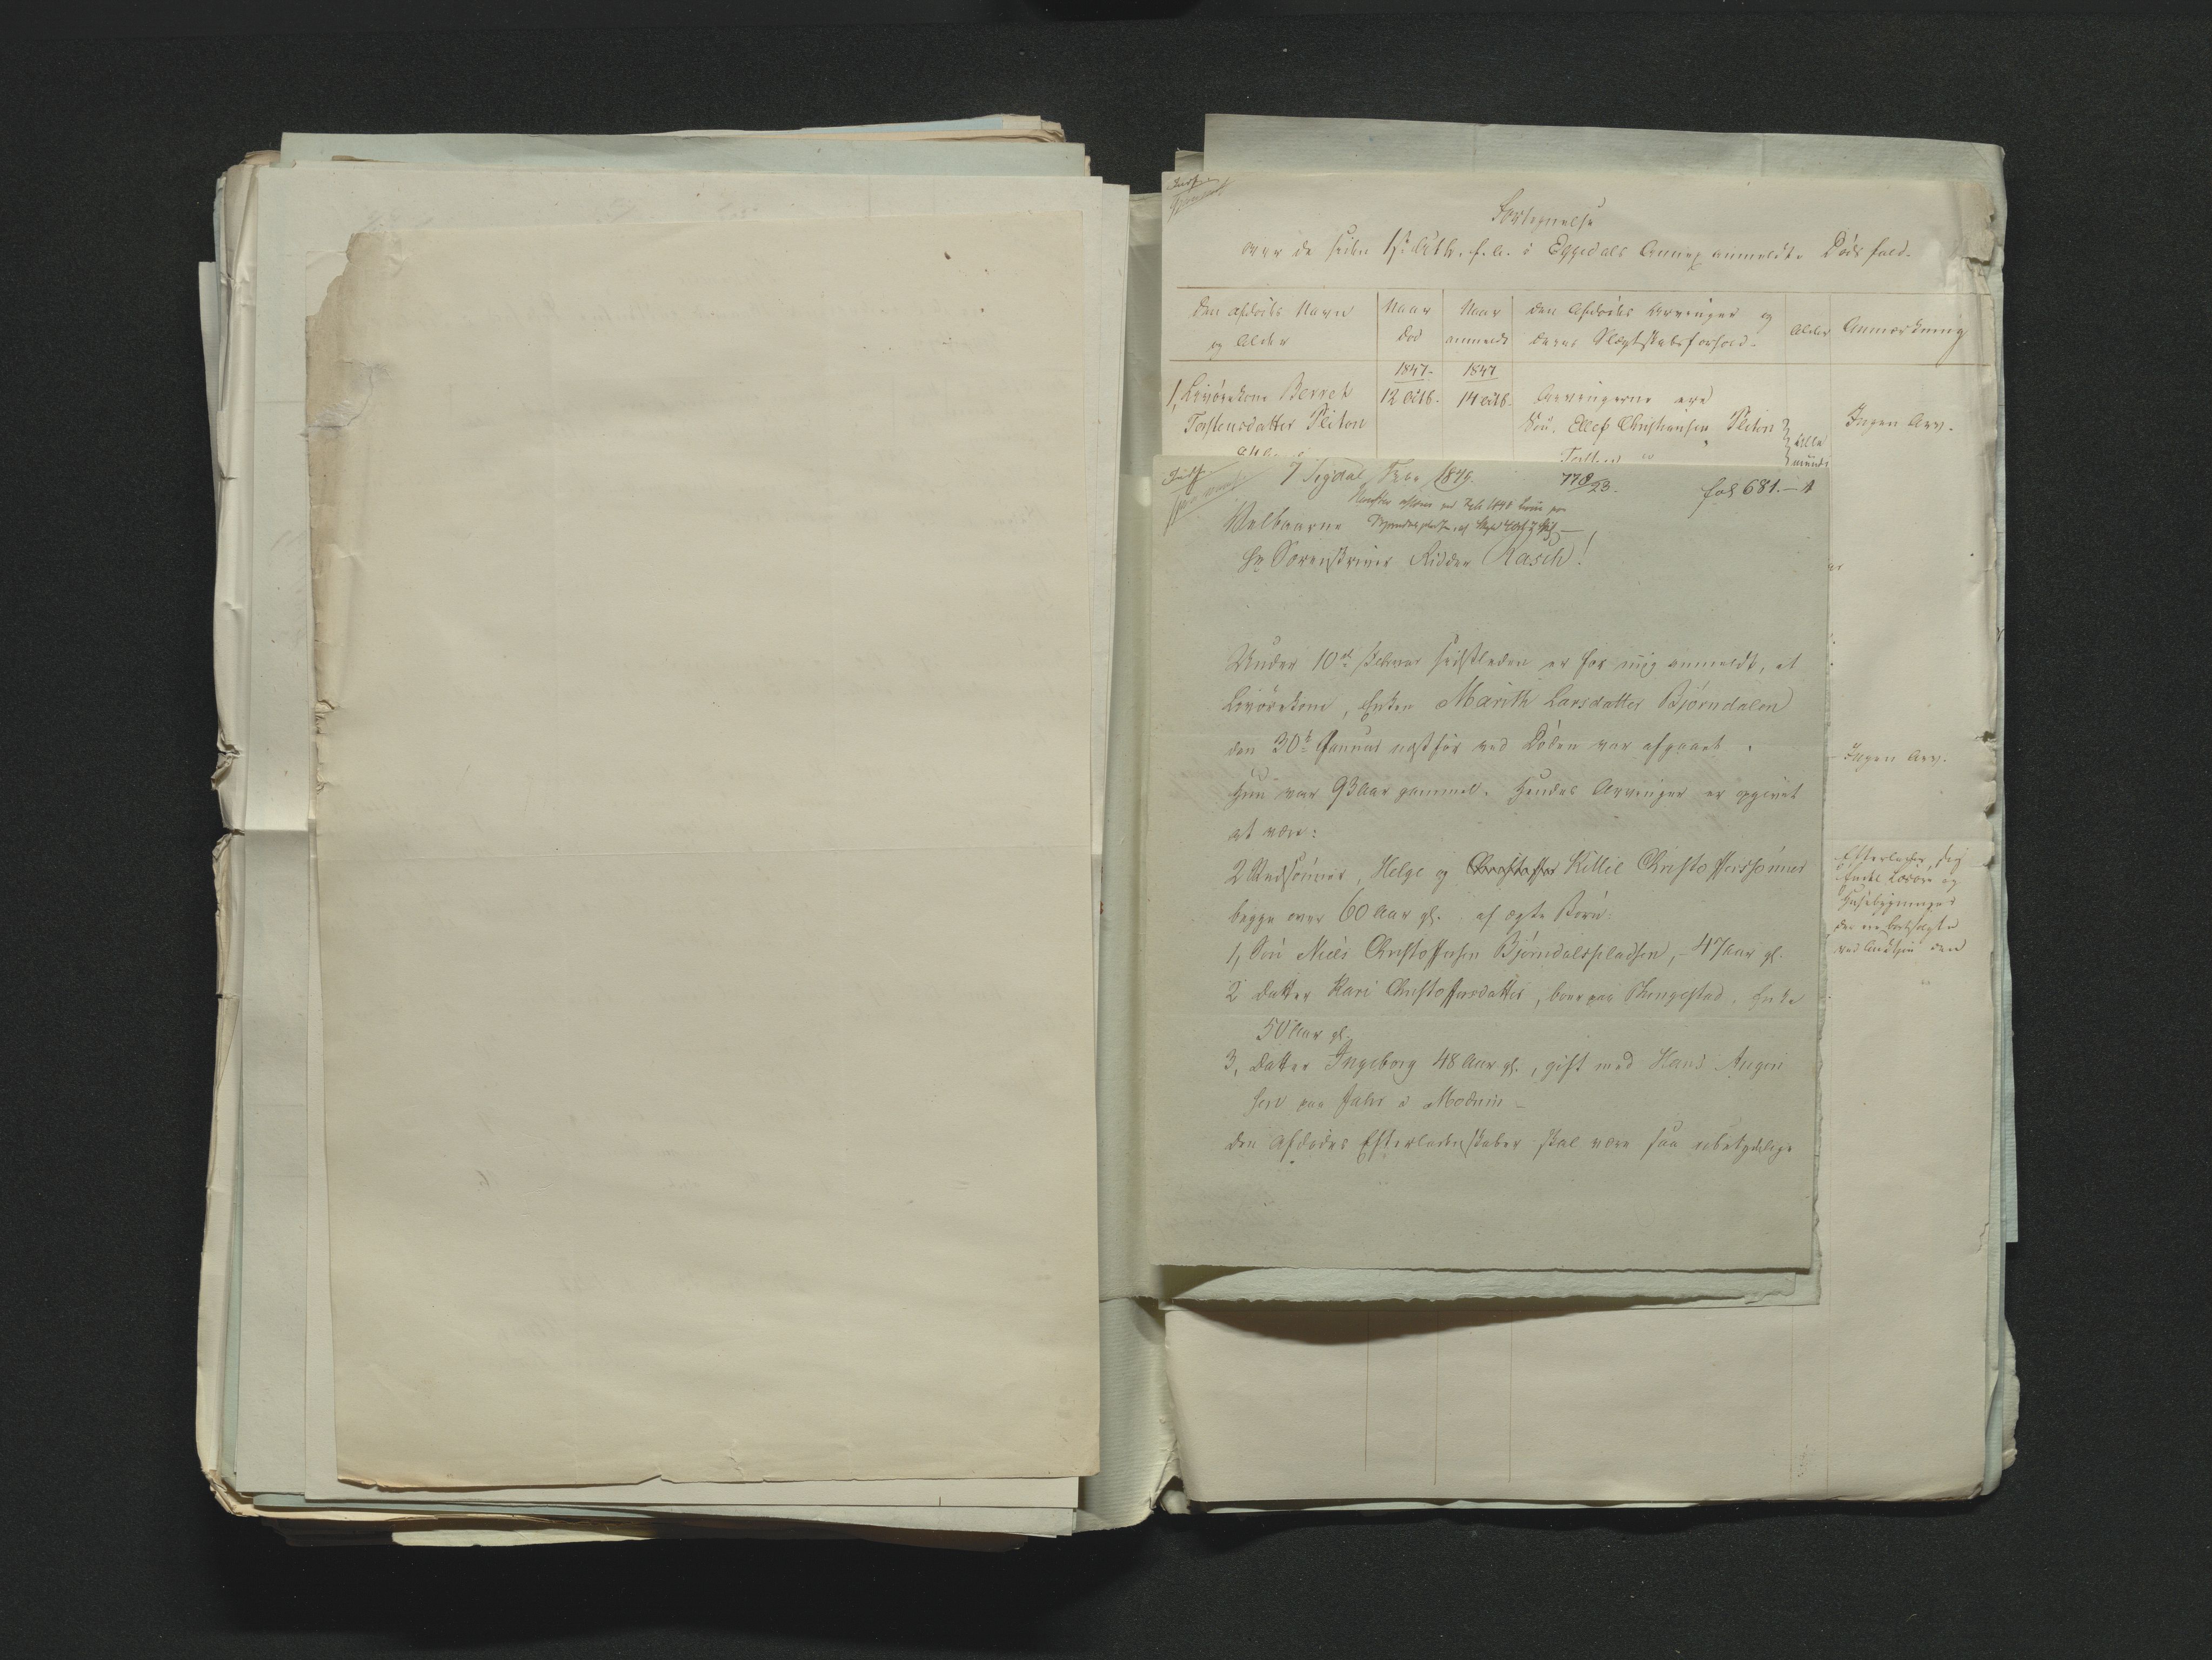 Fortegnelse
over de siden 1ste Octb. f. A. i Eggedals Annex anmeldte Dödsfald.
Den afdödes Navn
og Alder
Naar
död
Naar
anmeldt
Den Afdödes Arvinger og
deres Slægtskabsforhold.
Alder
Anmærkning
1847.
1847
1, Livörekone Berret
Torstensdatter Pleton
12 Octb.
14 Octb.
Arvingerne ere
Sön. Ellef Christiansen Pleton
alle
Ingen Arv.
Sigdal 1849.
778/23.
fol 681.
Velbaarne
Hr. Sorenskriver Ridder Rasch!
Under 10de Februar sidstleden er for mig anmeldt, at
Livörekone, Enken Marith Larsdatter Bjørndalen
den 30te Januar næstför ved Döden var afgaaet.
Hun var 93 Aar gammel. Hendes Arvinger er opgivet
at være:
2 Stedsönner, Helge og Christoffer Kittil Christofferssönner
begge over 60 Aar gl. af ægte Börn:
1, Sön Niels Christoffersen Bjørndalspladsen, - 47 Aar gl.
2 Datter Kari Christoffersdatter, boer paa Ringestad, Enke
50 Aar gl.
3, Datter Ingeborg 48 Aar gl., gift med Hans
sen paa i Modum -
Den Afdödes Efterladenskaber skal være saa ubetydelige
Ingen Arv.
Efterlader sig
endel Lösöre og
Husebygninger
der ere bortsolgte
ved Auction den